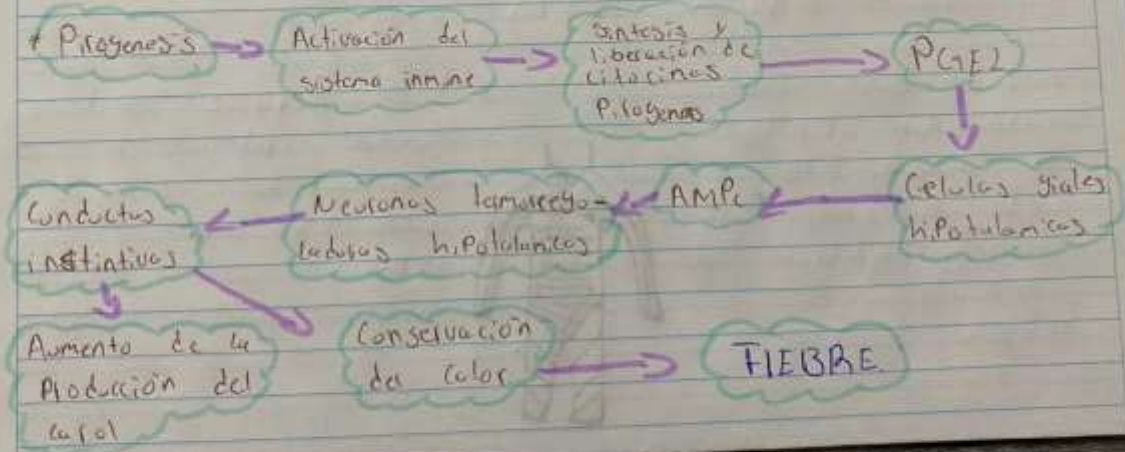 * Pirogenesis
Activación del
sistema inmune
Sintesis y
liberación de
citocinas
Pirogenas
PGE2
Celulas gliales
hipotalamicas
AMPc
Neuronas termorregu-
ladoras hipotalamicas
Conductas
instintivas
Aumento de la
Producción del
calor
Conservación
del calor
FIEBRE